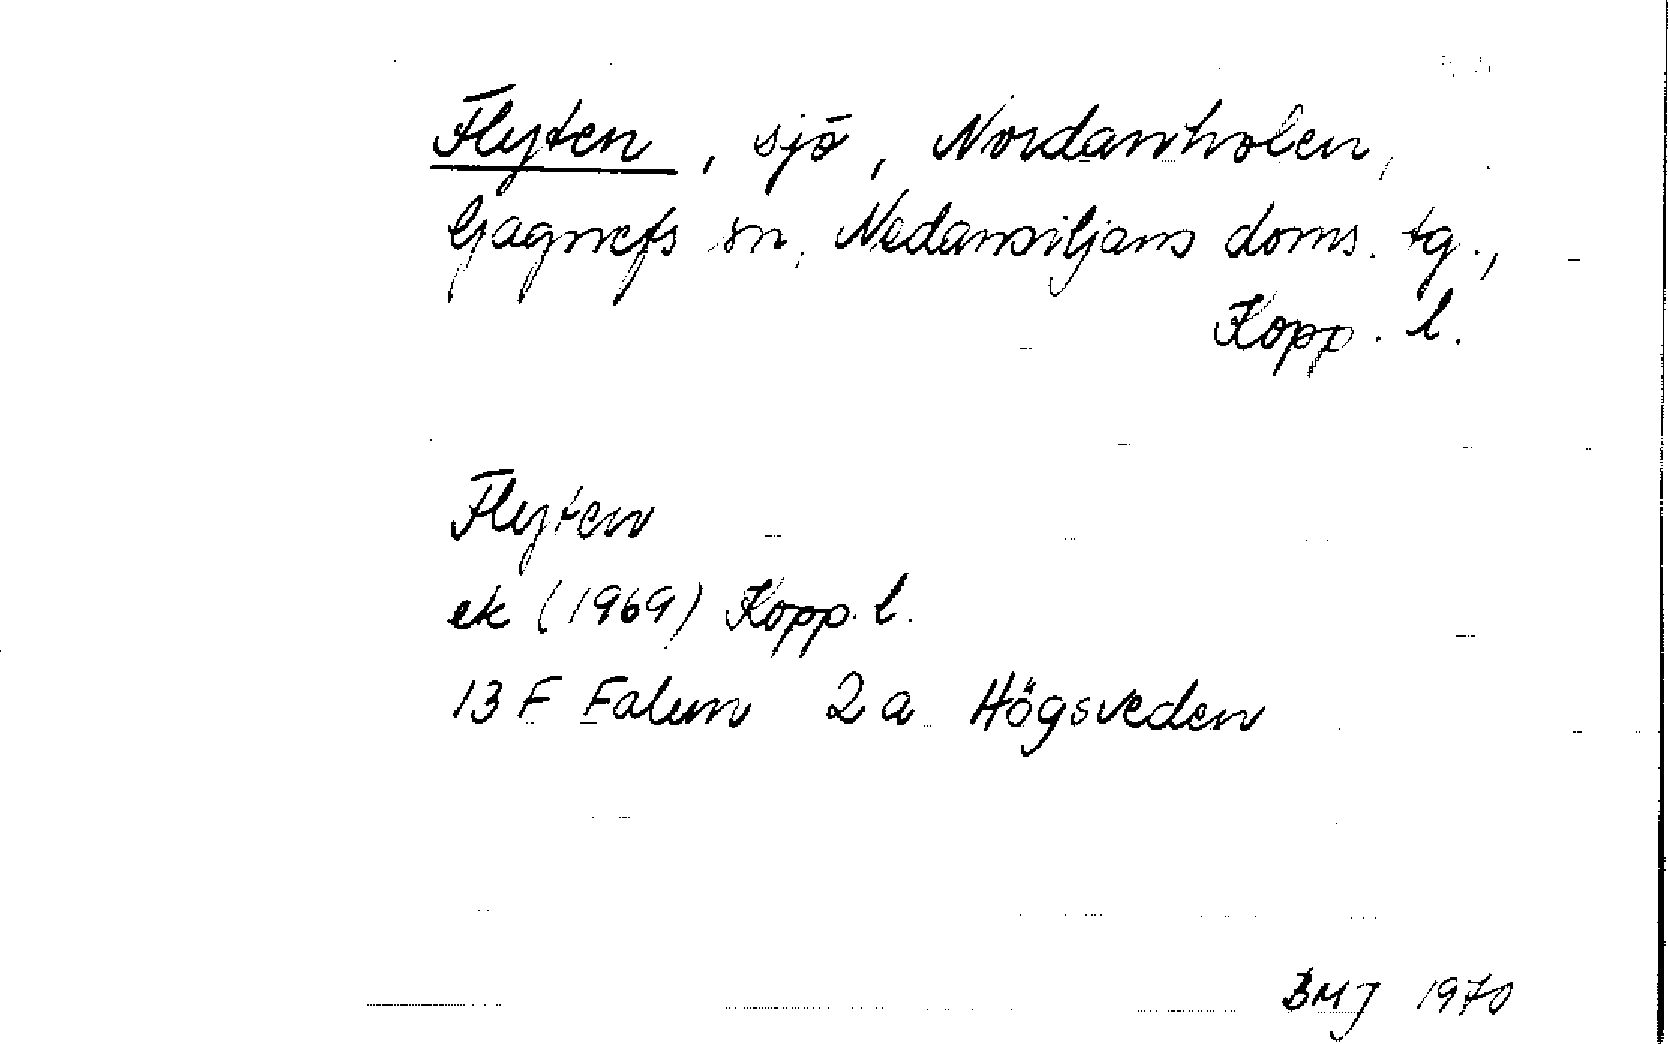 Flyten, sjö, Nordanholen,
Gagnefs sn, Nedansiljans doms. tg.,
Kopp. l.
Flyten
ek (1969) Kopp. l.
13 F Falun 2 a Högsveden
BMJ 1970